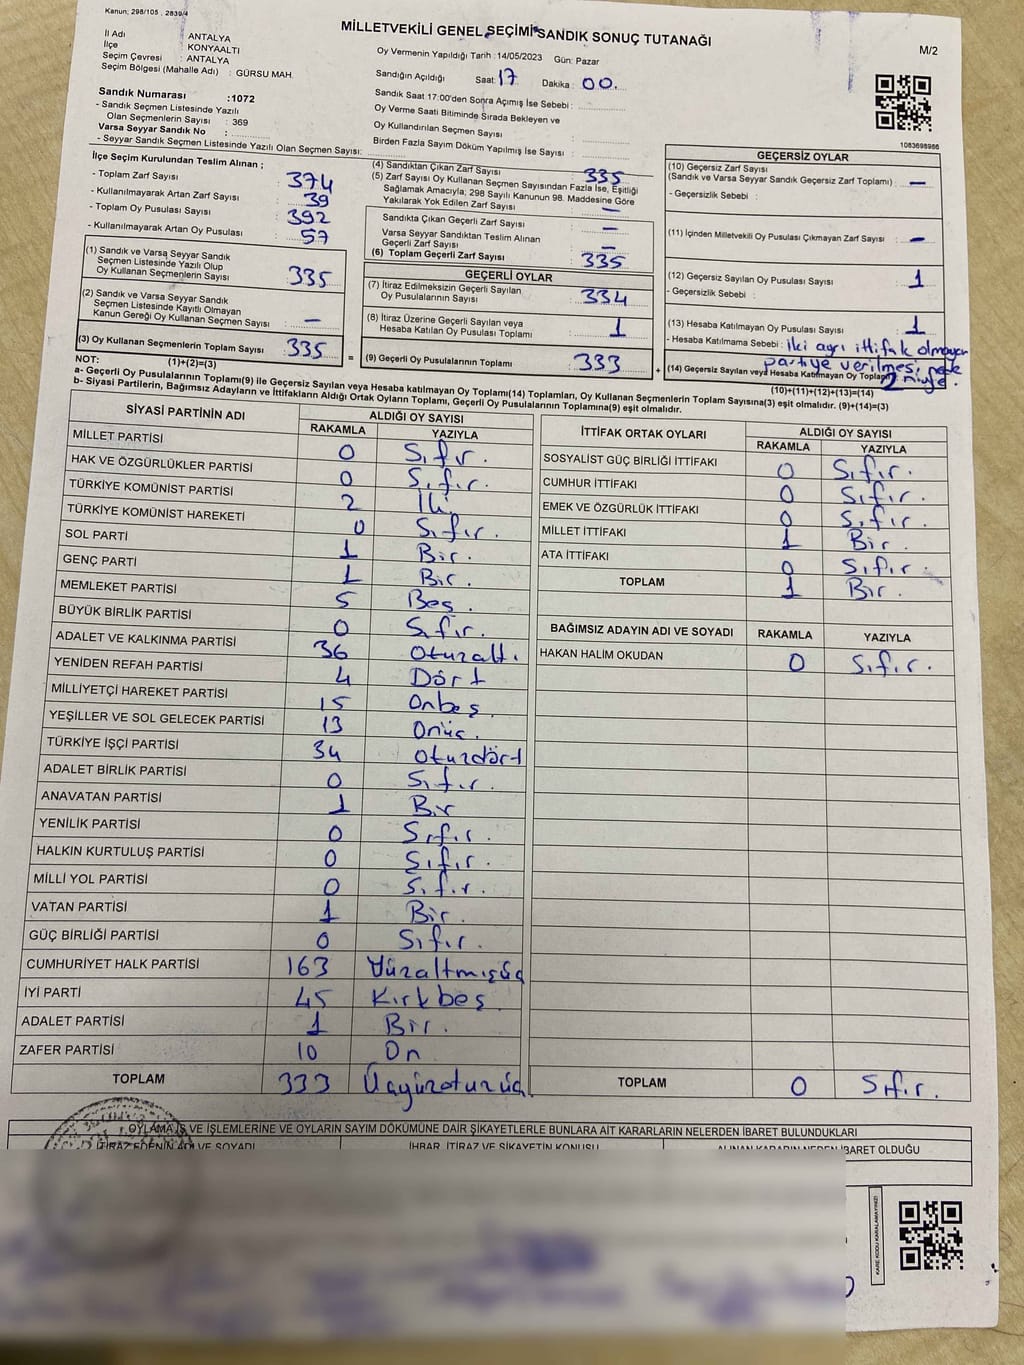 Kanun; 298/105 , 2839/4
MİLLETVEKİLİ GENEL SEÇİMİ SANDIK SONUÇ TUTANAĞI
M/2
İl Adı : ANTALYA
İlçe : KONYAALTI
Seçim Çevresi : ANTALYA
Seçim Bölgesi (Mahalle Adı) : GÜRSU MAH.
Sandık Numarası :1072
- Sandık Seçmen Listesinde Yazılı
Olan Seçmenlerin Sayısı : 369
Varsa Seyyar Sandık No :
- Seyyar Sandık Seçmen Listesinde Yazılı Olan Seçmen Sayısı:
Oy Vermenin Yapıldığı Tarih :14/05/2023 Gün: Pazar
Sandığın Açıldığı Saat: 17 Dakika : 00.
Sandık Saat 17:00'den Sonra Açımış İse Sebebi :
Oy Verme Saati Bitiminde Sırada Bekleyen ve
Oy Kullandırılan Seçmen Sayısı :
Birden Fazla Sayım Döküm Yapılmış İse Sayısı :
1083698966
İlçe Seçim Kurulundan Teslim Alınan ;
- Toplam Zarf Sayısı : 374
- Kullanılmayarak Artan Zarf Sayısı : 39
- Toplam Oy Pusulası Sayısı : 392
- Kullanılmayarak Artan Oy Pusulası : 57
(1) Sandık ve Varsa Seyyar Sandık
Seçmen Listesinde Yazılı Olup
Oy Kullanan Seçmenlerin Sayısı : 335
(2) Sandık ve Varsa Seyyar Sandık
Seçmen Listesinde Kayıtlı Olmayan
Kanun Gereği Oy Kullanan Seçmen Sayısı : –
(3) Oy Kullanan Seçmenlerin Toplam Sayısı : 335
(1)+(2)=(3)
(4) Sandıktan Çıkan Zarf Sayısı : 335
(5) Zarf Sayısı Oy Kullanan Seçmen Sayısından Fazla İse, Eşitliği
Sağlamak Amacıyla; 298 Sayılı Kanunun 98. Maddesine Göre
Yakılarak Yok Edilen Zarf Sayısı : –
Sandıkta Çıkan Geçerli Zarf Sayısı : –
Varsa Seyyar Sandıktan Teslim Alınan
Geçerli Zarf Sayısı : –
(6) Toplam Geçerli Zarf Sayısı : 335
GEÇERLİ OYLAR
(7) İtiraz Edilmeksizin Geçerli Sayılan
Oy Pusulalarının Sayısı : 334
(8) İtiraz Üzerine Geçerli Sayılan veya
Hesaba Katılan Oy Pusulası Toplamı : 1
= (9) Geçerli Oy Pusulalarının Toplamı : 333 +
GEÇERSİZ OYLAR
(10) Geçersiz Zarf Sayısı
(Sandık ve Varsa Seyyar Sandık Geçersiz Zarf Toplamı) : –
- Geçersizlik Sebebi :
(11) İçinden Milletvekili Oy Pusulası Çıkmayan Zarf Sayısı : –
(12) Geçersiz Sayılan Oy Pusulası Sayısı : 1
- Geçersizlik Sebebi :
(13) Hesaba Katılmayan Oy Pusulası Sayısı : 1
- Hesaba Katılmama Sebebi : iki ayrı ittifak olmayan
partiye verilmesi
(14) Geçersiz Sayılan veya Hesaba Katılmayan Oy Toplamı 2
(10)+(11)+(12)+(13)=(14)
NOT:
a- Geçerli Oy Pusulalarının Toplamı(9) ile Geçersiz Sayılan veya Hesaba katılmayan Oy Toplamı(14) Toplamları, Oy Kullanan Seçmenlerin Toplam Sayısına(3) eşit olmalıdır. (9)+(14)=(3)
b- Siyasi Partilerin, Bağımsız Adayların ve İttifakların Aldığı Ortak Oyların Toplamı, Geçerli Oy Pusulalarının Toplamına(9) eşit olmalıdır.
SİYASİ PARTİNİN ADI ALDIĞI OY SAYISI
RAKAMLA YAZIYLA
MİLLET PARTİSİ 0 Sıfır.
HAK VE ÖZGÜRLÜKLER PARTİSİ 0 Sıfır.
TÜRKİYE KOMÜNİST PARTİSİ 2 İki
TÜRKİYE KOMÜNİST HAREKETİ 0 Sıfır.
SOL PARTİ 1 Bir.
GENÇ PARTİ 1 Bir.
MEMLEKET PARTİSİ 5 Beş.
BÜYÜK BİRLİK PARTİSİ 0 Sıfır.
ADALET VE KALKINMA PARTİSİ 36 Otuzaltı
YENİDEN REFAH PARTİSİ 4 Dört
MİLLİYETÇİ HAREKET PARTİSİ 15 Onbeş.
YEŞİLLER VE SOL GELECEK PARTİSİ 13 Onüç.
TÜRKİYE İŞÇİ PARTİSİ 34 Otuzdört
ADALET BİRLİK PARTİSİ 0 Sıfır.
ANAVATAN PARTİSİ 1 Bir
YENİLİK PARTİSİ 0 Sıfır.
HALKIN KURTULUŞ PARTİSİ 0 Sıfır.
MİLLİ YOL PARTİSİ 0 Sıfır.
VATAN PARTİSİ 1 Bir.
GÜÇ BİRLİĞİ PARTİSİ 0 Sıfır.
CUMHURİYET HALK PARTİSİ 163 Yüzaltmışüç
İYİ PARTİ 45 Kırkbeş
ADALET PARTİSİ 1 Bir.
ZAFER PARTİSİ 10 On
TOPLAM 333 Üçyüzotuzüç.
İTTİFAK ORTAK OYLARI ALDIĞI OY SAYISI
RAKAMLA YAZIYLA
SOSYALİST GÜÇ BİRLİĞİ İTTİFAKI 0 Sıfır.
CUMHUR İTTİFAKI 0 Sıfır.
EMEK VE ÖZGÜRLÜK İTTİFAKI 0 Sıfır.
MİLLET İTTİFAKI 1 Bir.
ATA İTTİFAKI 0 Sıfır.
TOPLAM 1 Bir.
BAĞIMSIZ ADAYIN ADI VE SOYADI RAKAMLA YAZIYLA
HAKAN HALİM OKUDAN 0 Sıfır.
TOPLAM 0 Sıfır.
OYLAMA İŞ VE İŞLEMLERİNE VE OYLARIN SAYIM DÖKÜMÜNE DAİR ŞİKAYETLERLE BUNLARA AİT KARARLARIN NELERDEN İBARET BULUNDUKLARI
İTİRAZ EDENİN ADI VE SOYADI İHBAR, İTİRAZ VE ŞİKAYETİN KONUSU ALINAN KARARIN NEDEN İBARET OLDUĞU
KARE KODU KARALAMAYINIZ!